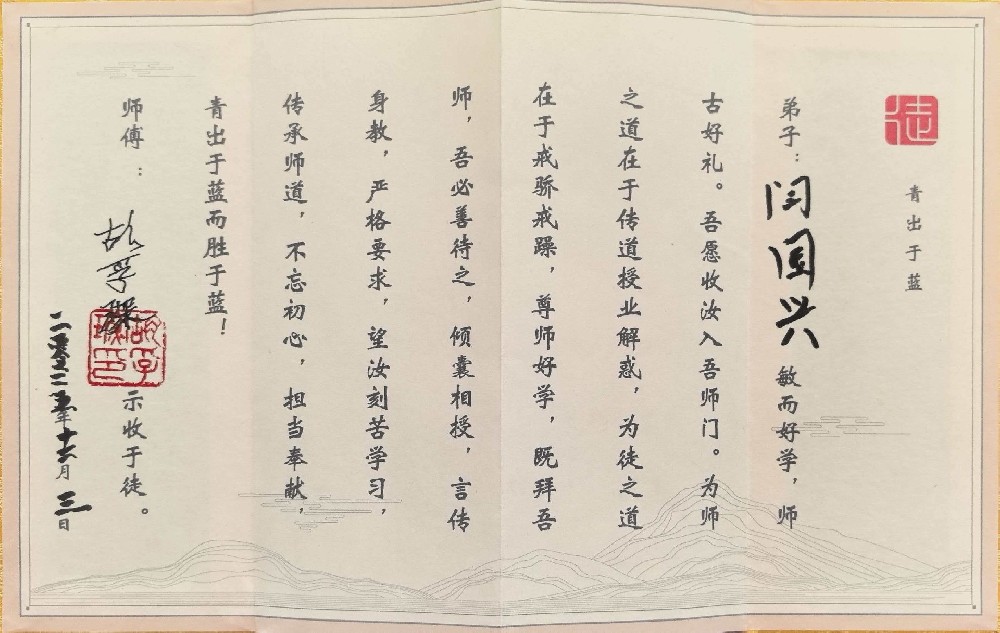 徒
青出于蓝
弟子：闫国兴 敏而好学，师
古好礼。吾愿收汝入吾师门。为师
之道在于传道授业解惑，为徒之道
在于戒骄戒躁，尊师好学，既拜吾
师，吾必善待之，倾囊相授，言传
身教，严格要求，望汝刻苦学习，
传承师道，不忘初心，担当奉献，
青出于蓝而胜于蓝！
师傅：胡孚琛 示收于徒。
胡孚琛印
年 月三日